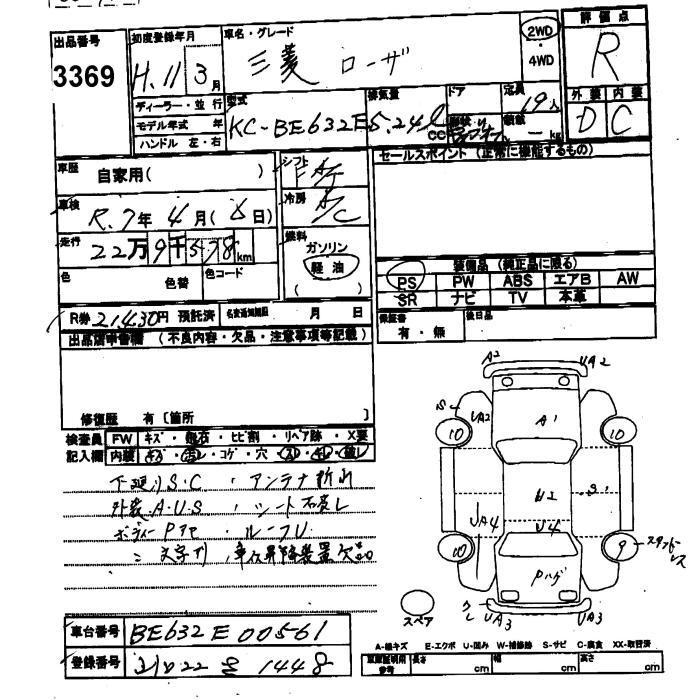 出品番号 3369
初度登録年月 H.11 3月
車名・グレード 三菱 ローザ
2WD・4WD
評価点 R
ディーラー・並行
モデル年式 年
ハンドル 左・右
型式 KC-BE632E
排気量 5.24 cc
ドア 形状
定員 19人
積載 - kg
外装 D
内装 C
車歴 自家用( )
シフト F AT
冷房 A/C
車検 R.7年4月( 日)
走行 22万9千578km
燃料 ガソリン 軽油 ( )
色 色替 色コード
セールスポイント(正常に機能するもの)
装備品(純正品に限る)
PS PW ABS エアB AW
SR ナビ TV 本革
R券 21430円 預託済 名変通知期限 月 日
保証書 有・無
後日品
出品店申告欄(不良内容・欠品・注意事項等記載)
修復歴 有〔箇所 〕
検査員記入欄 FW キズ・飛石・ヒビ割・リペア跡・X要
内装 キズ・汚レ・コゲ・穴・スレ・
下廻りS.C ・アンテナ折れ
外装.A.U.S ・シート
ボディーPアセ ・ルーフU
文字 装置欠品
A2 UA2
S UA2 A1
10 10
U2 S
UA4 U4
10 9 スタッドレス
Pハゲ
スペア
UA3 UA3
車台番号 BE632E00561
登録番号 1448
A-線キズ E-エクボ U-凹み W-補修跡 S-サビ C-腐食 XX-取替済
車庫証明用参考 長さ cm 幅 cm 高さ cm